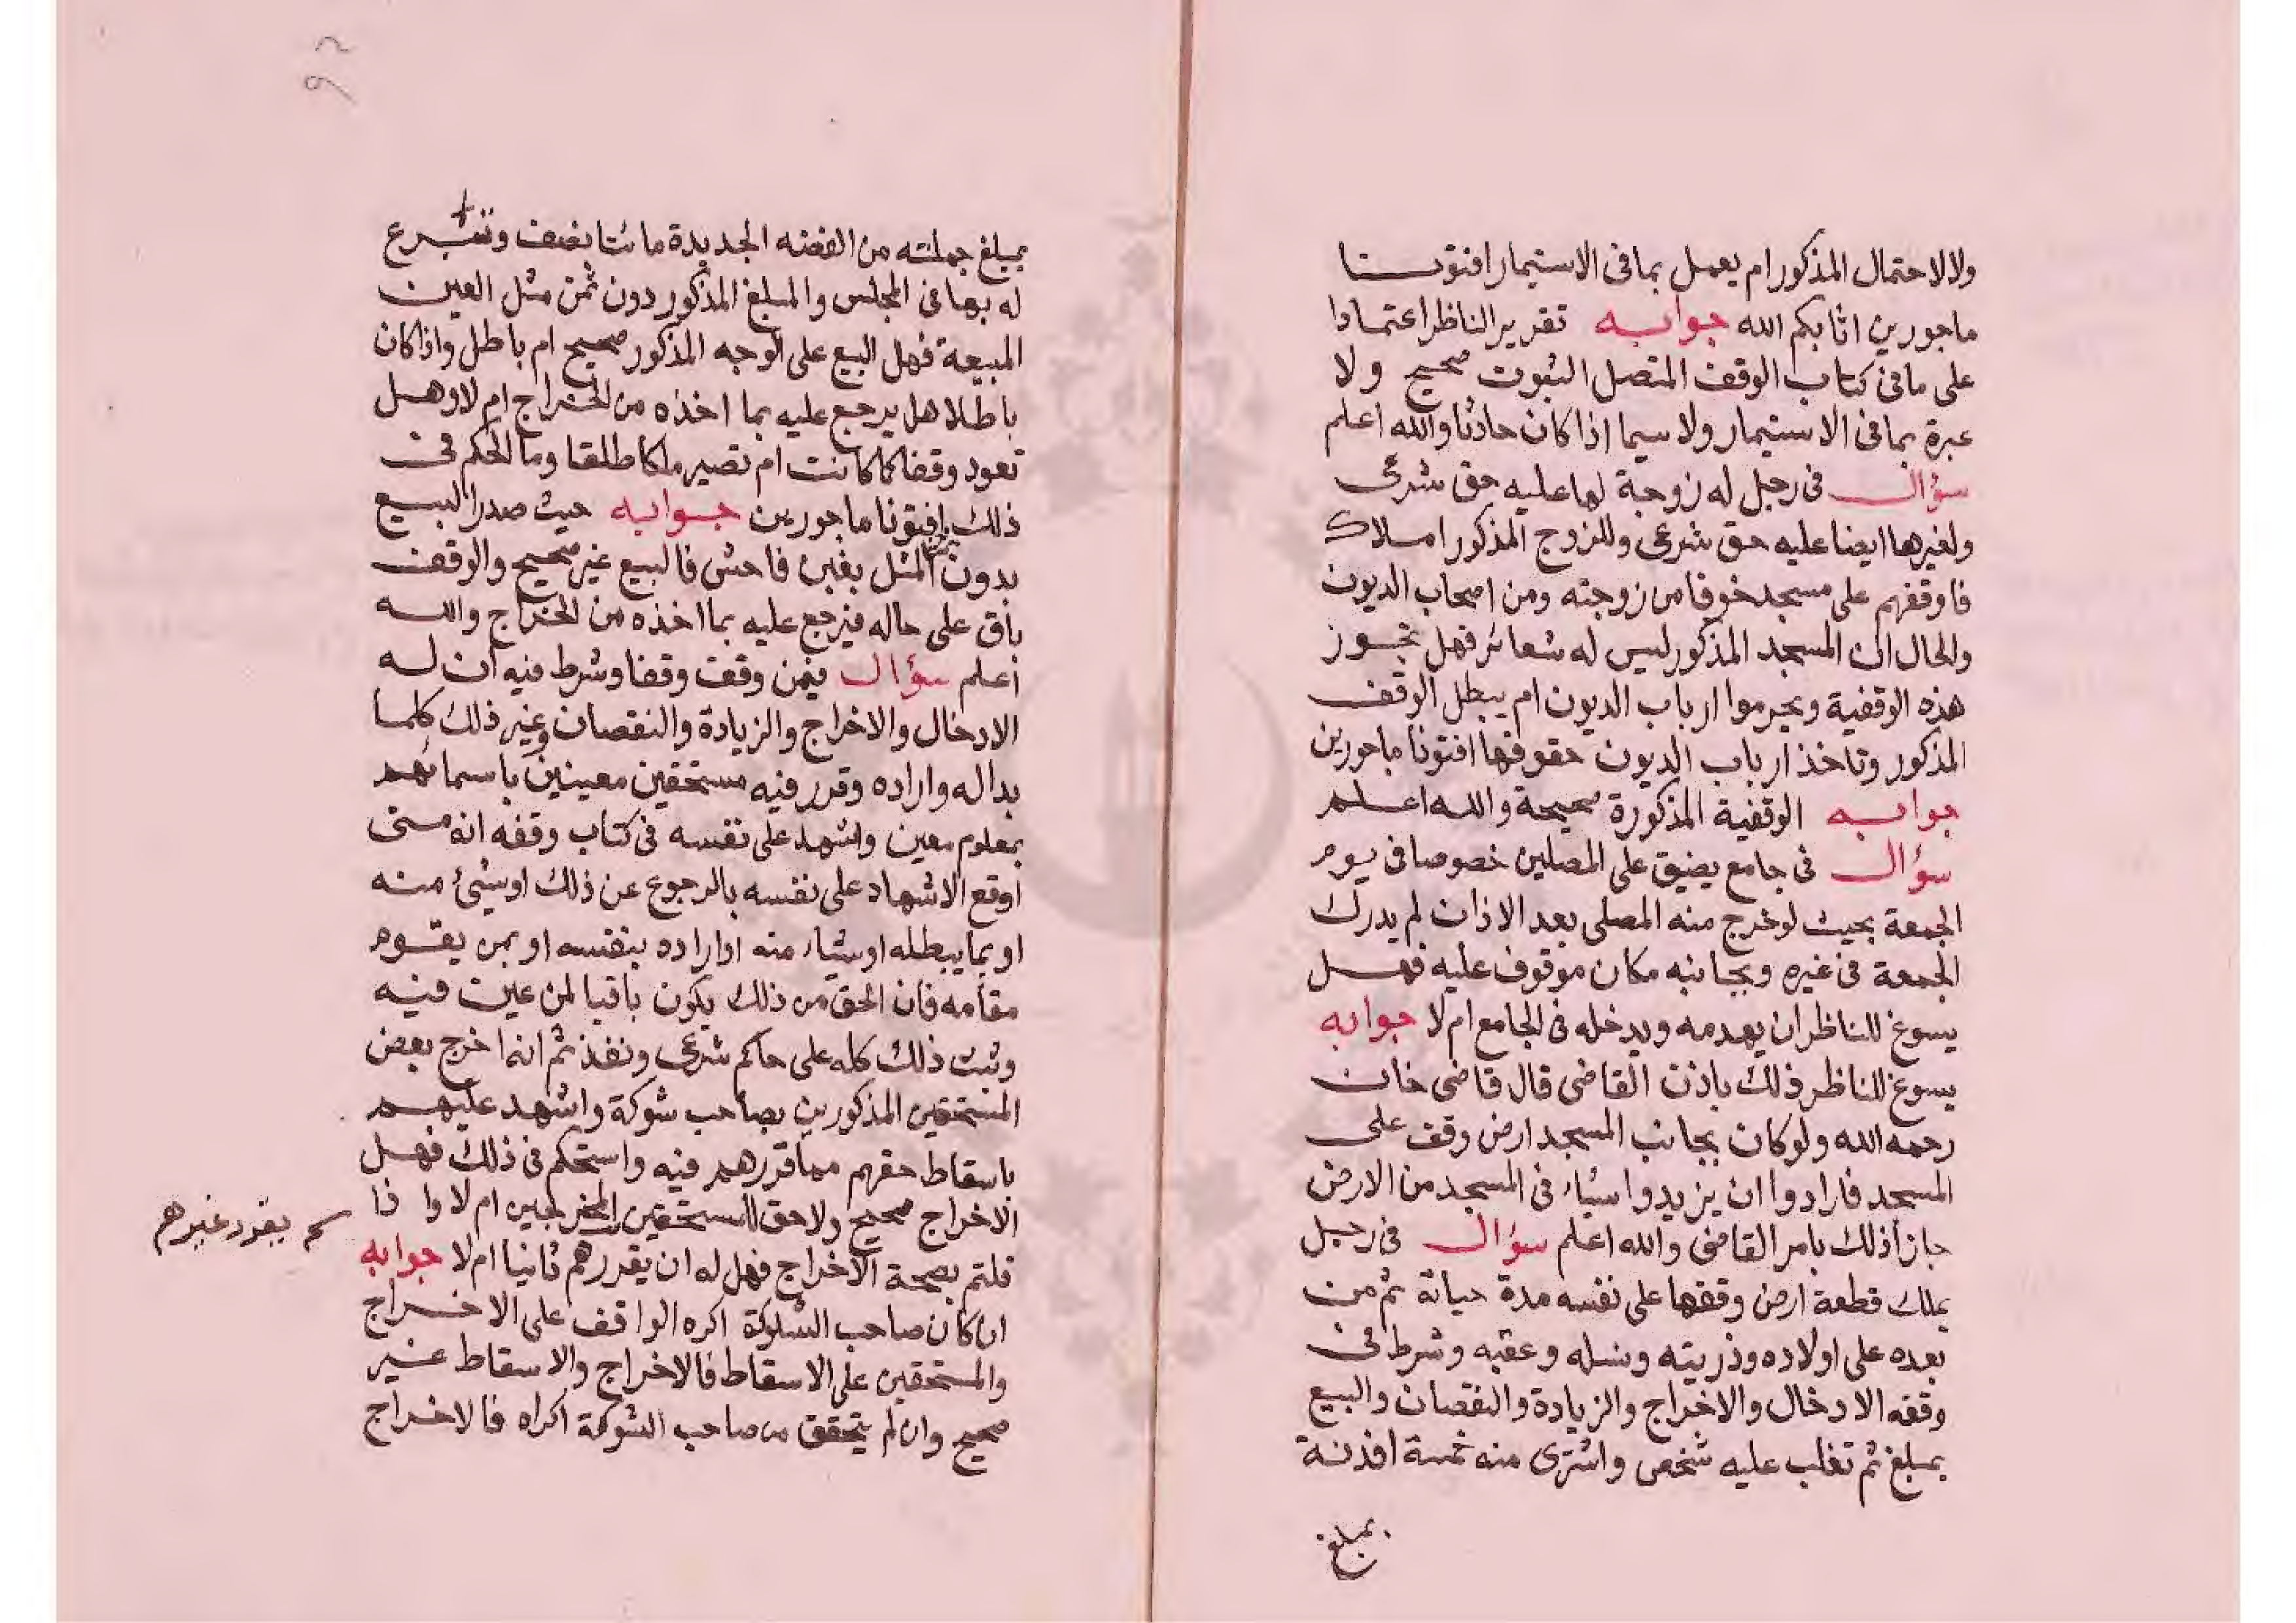 ولا الاحتمال المذكور ام يعمل بما فى الاستيمار افتونا
ماجورين اثابكم الله جوابه تقرير الناظر اعتمادا
على ما فى كتاب الوقف المتصل الثبوت صحيح ولا
عبرة بما فى الاستيمار ولا سيما اذا كان حادثا والله اعلم
سؤال فى رجل له زوجة لها عليه حق شرعى
ولغيرها ايضا عليه حق شرعى وللزوج المذكور املاك
فاوقفهم على مسجد خوفا من زوجته ومن اصحاب الديون
والحال ان المسجد المذكور ليس له شعائر فهل تجوز
هذه الوقفية ويحرموا ارباب الديون ام يبطل الوقف
المذكور وتاخذ ارباب الديون حقوقها افتونا ماجورين
جوابه الوقفية المذكورة صحيحة والله اعلم
سؤال فى جامع يضيق على المصلين خصوصا فى يوم
الجمعة بحيث لو خرج منه المصلى بعد الاذان لم يدرك
الجمعة فى غيره وبجانبه مكان موقوف عليه فهل
يسوغ للناظر ان يهدمه ويدخله فى الجامع ام لا جوابه
يسوغ للناظر ذلك باذن القاضى قال قاضى خان
رحمه الله ولو كان بجانب المسجد ارض وقف على
المسجد فارادوا ان يزيدوا شياء فى المسجد من الارض
جاز ذلك بامر القاضى والله اعلم سؤال فى رجل
يملك قطعة ارض وقفها على نفسه مدة حياته ثم من
بعده على اولاده وذريته ونسله وعقبه وشرط فى
وقفه الادخال والاخراج والزيادة والنقصان والبيع
بمبلغ ثم تغلب عليه شخص واشترى منه خمسة افدنة
بمبلغ
٩٢
بمبلغ جملته من الفضه الجديدة مائتا نصف وتشرع
له بها فى المجلس والمبلغ المذكور دون ثمن مثل العين
المبيعة فهل البيع على الوجه المذكور صحيح ام باطل واذا كان
باطلا هل يرجع عليه بما اخذه من الخراج ام لا وهل
تعود وقفا كما كانت ام تصير ملكا طلقا وما الحكم فى
ذلك افتونا ماجورين جوابه حيث صدر البيع
بدون ثمن المثل بغبن فاحش فالبيع غير صحيح والوقف
باق على حاله فيرجع عليه بما اخذه من الخراج والله
اعلم سؤال فيمن وقف وقفا وشرط فيه ان له
الادخال والاخراج والزيادة والنقصان وغير ذلك كلما
بدا له واراده وقرر فيه مستحقين معينين باسمائهم
بمعلوم معين واشهد على نفسه فى كتاب وقفه انه متى
اوقع الاشهاد على نفسه بالرجوع عن ذلك او شئ منه
او بما يبطله او شياء منه او اراده بنفسه او بمن يقوم
مقامه فان الحق من ذلك يكون باقيا لمن عين فيه
وثبت ذلك كله على حاكم شرعى ونفذ ثم انه اخرج بعض
المستحقين المذكورين بصاحب شوكة واشهد عليهم
باسقاط حقهم مما قررهم فيه واستحكم فى ذلك فهل
الاخراج صحيح ولا حق للمستحقين المخرجين ام لا واذا
يقرر غيرهم
قلتم بصحة الاخراج فهل له ان يقررهم ثانيا ام لا جوابه
ان كان صاحب الشوكة اكره الواقف على الاخراج
والمستحقين على الاسقاط فالاخراج والاسقاط غير
صحيح وان لم يتحقق من صاحب الشوكة اكراه فالاخراج